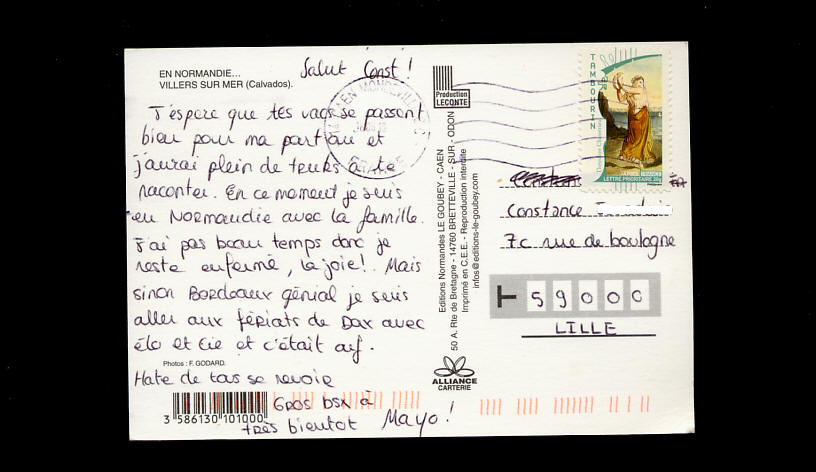 EN NORMANDIE...
VILLERS SUR MER (Calvados).
Salut Const !
J'espère que tes vacs se passent
bien pour ma part oui et
j'aurai plein de trucs à te
raconter. En ce moment je suis
en Normandie avec la famille.
J'ai pas beau temps donc je
reste enfermé, la joie! Mais
sinon Bordeaux génial je suis
aller aux fériats de Dax avec
élo et Cie et c'était ouf.
Photos : F. GODARD.
Hate de tous se revoir
Gros bsx à
très bientot Mayo !
3 586130 101000
Production
LECONTE
Editions Normandes LE GOUBEY - CAEN
50 A, Rte de Bretagne - 14760 BRETTEVILLE - SUR - ODON
Imprimé en C.E.E. - Reproduction interdite
infos@editions-le-goubey.com
ALLIANCE
CARTERIE
TAMBOURIN
LETTRE PRIORITAIRE 20g
Constance
7c rue de boulogne
59000
LILLE